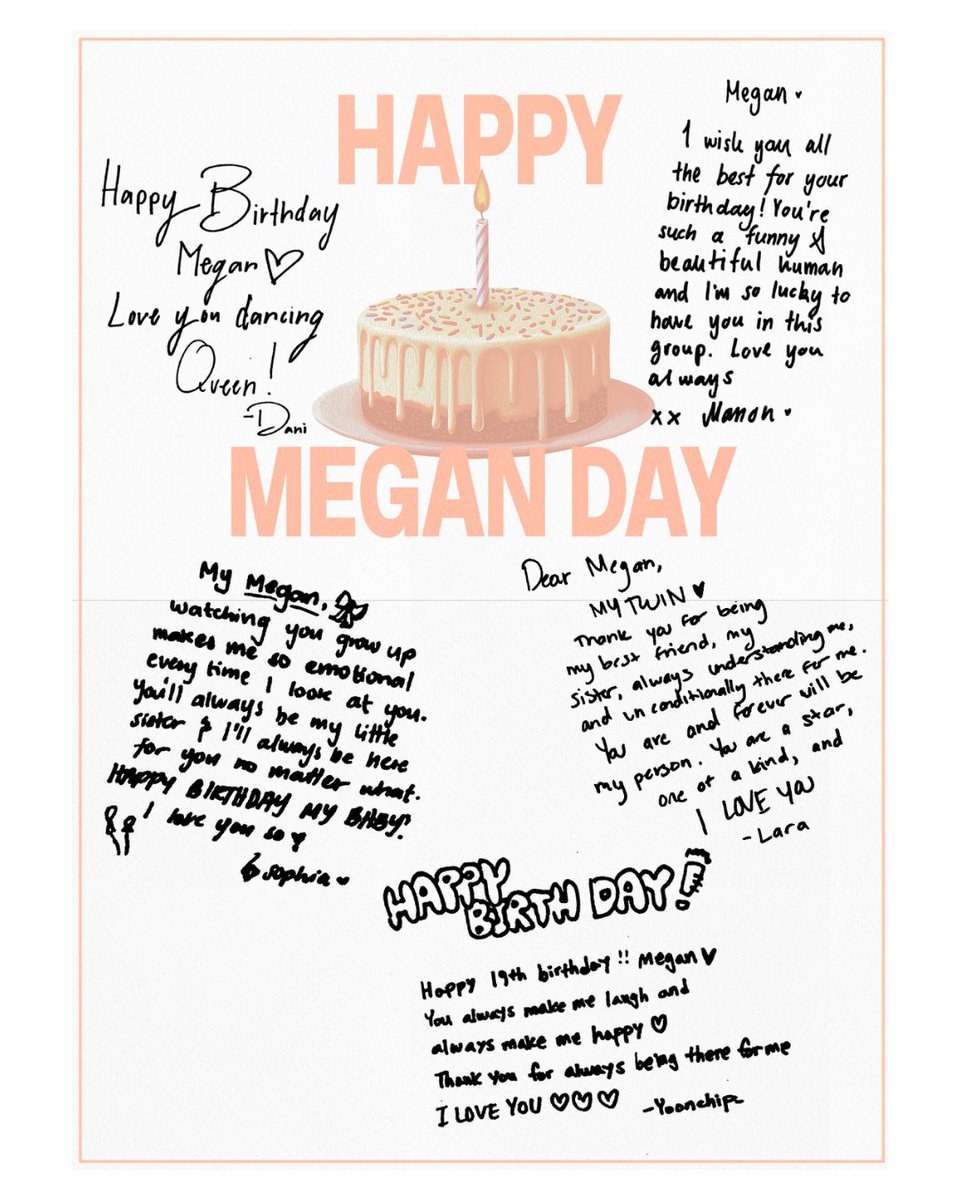 HAPPY
Happy Birthday
Megan♡
Love you dancing
Queen!
-Dani
Megan ♥
I wish you all
the best for your
birthday! You're
such a funny &
beautiful human
and I'm so lucky to
have you in this
group. Love you
always
xx Manon ♥
MEGAN DAY
My Megan,
watching you grow up
makes me so emotional
every time I look at you.
You'll always be my little
sister & I'll always be here
for you no matter what.
HAPPY BIRTHDAY MY BABY!
I love you so ♥
sophia ♥
Dear Megan,
MY TWIN ♥
Thank you for being
my best friend, my
sister, always understanding me,
and unconditionally there for me.
You are and forever will be
my person. You are a star,
one of a kind, and
I LOVE YOU
-Lara
HAPPY
BIRTH DAY!
Happy 19th birthday!! Megan ♥
You always make me laugh and
always make me happy ♡
Thank you for always being there for me
I LOVE YOU ♡♡♡ -Yoonchip